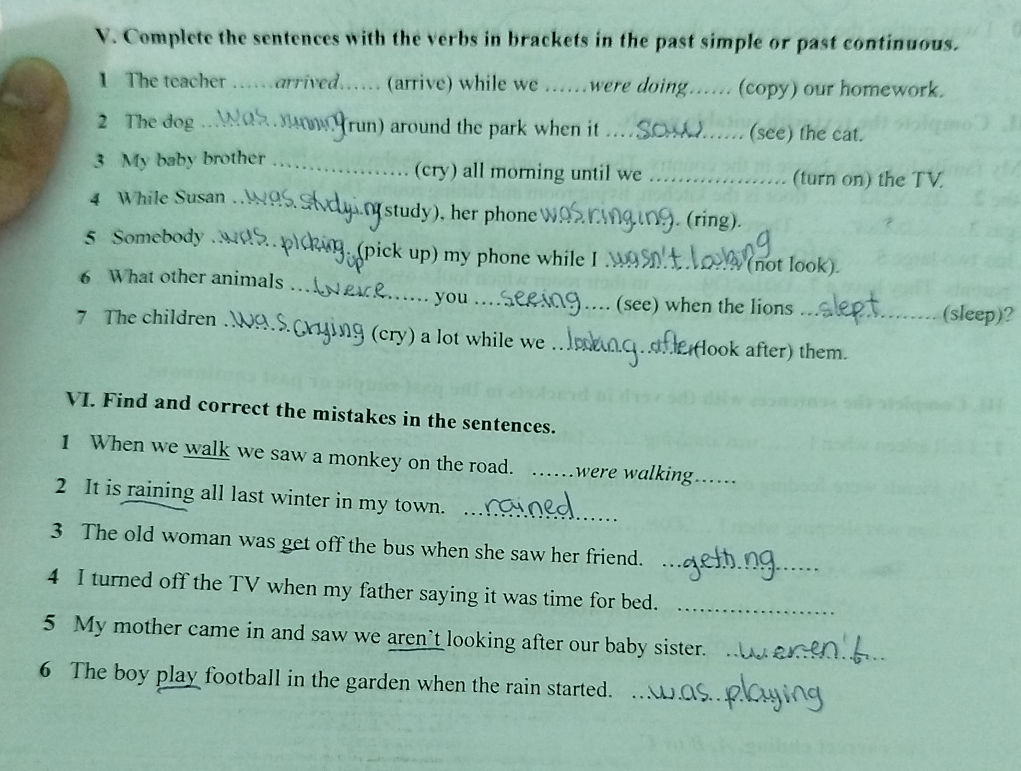 V. Complete the sentences with the verbs in brackets in the past simple or past continuous.
1 The teacher ......arrived...... (arrive) while we ......were doing...... (copy) our homework.
2 The dog ...was running (run) around the park when it ....saw...... (see) the cat.
3 My baby brother .................... (cry) all morning until we .................... (turn on) the TV.
4 While Susan ..was studying (study), her phone was ringing. (ring).
5 Somebody ..was picking up (pick up) my phone while I .wasn't looking (not look).
6 What other animals ...were...... you ....seeing.... (see) when the lions ...slept......... (sleep)?
7 The children ..was crying (cry) a lot while we ..looking after (look after) them.
VI. Find and correct the mistakes in the sentences.
1 When we walk we saw a monkey on the road. ......were walking......
2 It is raining all last winter in my town. ...rained......
3 The old woman was get off the bus when she saw her friend. ...getting......
4 I turned off the TV when my father saying it was time for bed. ....................
5 My mother came in and saw we aren't looking after our baby sister. ..weren't...
6 The boy play football in the garden when the rain started. ...was playing